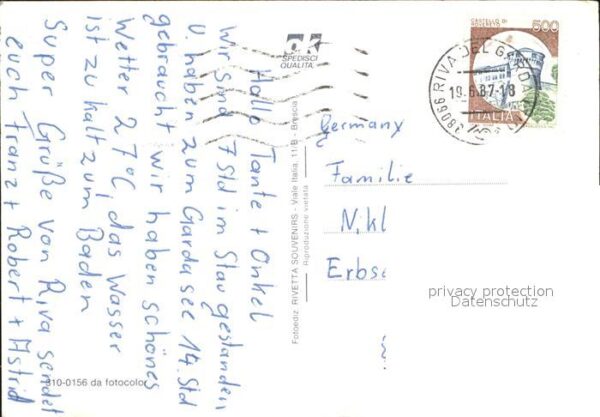 Hallo Tante + Onkel
Wir sind 7 Std im Stau gestanden
u. haben zum Gardasee 14. Std
gebraucht wir haben schönes
Wetter 27°C, das Wasser
ist zu kalt zum Baden
Super Grüße von Riva sendet
euch Franz + Robert + Astrid
SPEDISCI
QUALITÀ
CASTELLO DI
ROVERETO
500
ITALIA
38066 RIVA DEL GARDA
19.6.87-18
Germany
Familie
Nikl
Erbse
privacy protection
Datenschutz
Fotoediz. RIVETTA SOUVENIRS - Viale Italia, 11/B - Brescia
Riproduzione vietata
810-0156 da fotocolor